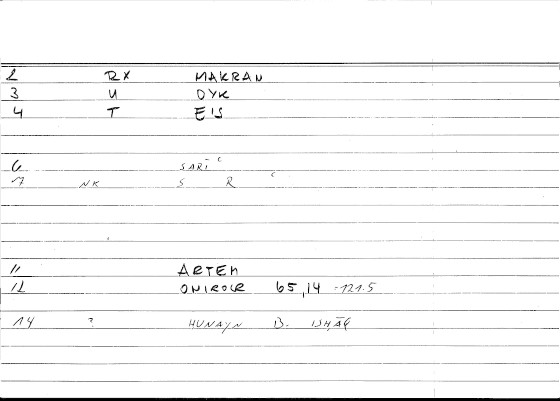 2 RX MAKRAN
3 U DYK
4 T EIS
6 SARĪ c
7 NK S R c
11 ARTEM
12 ONIROCR 65,14 -121.5
14 ? HUNAYN B. ISHĀQ